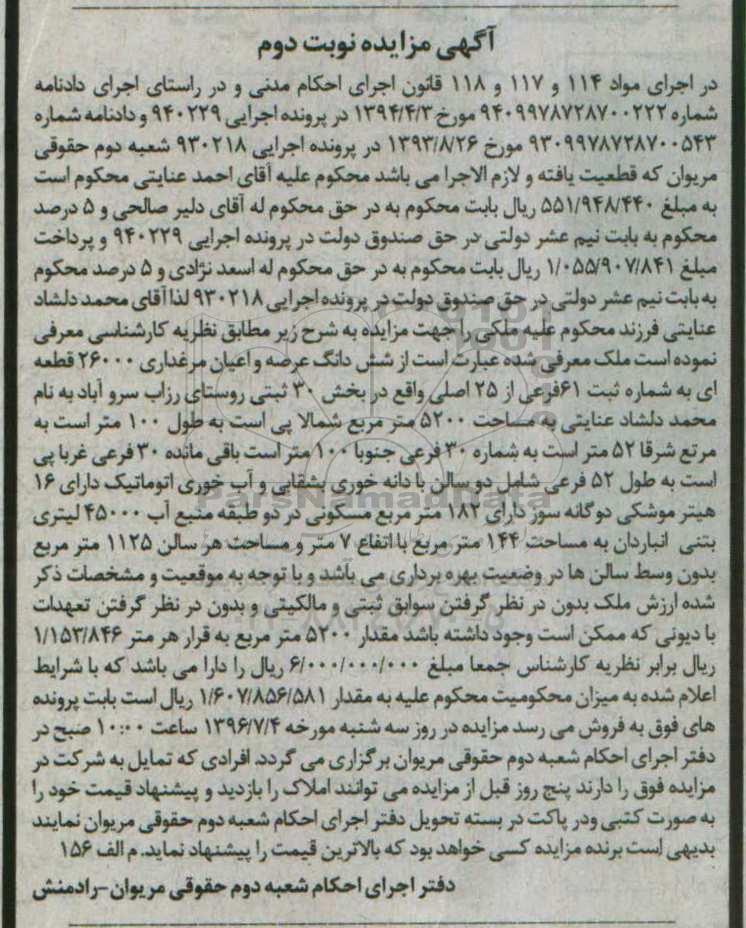 آگهی مزایده نوبت دوم
در اجرای مواد ۱۱۴ و ۱۱۷ و ۱۱۸ قانون اجرای احکام مدنی و در راستای اجرای دادنامه
شماره ۹۴۰۹۹۷۸۷۲۸۷۰۰۲۲۲ مورخ ۱۳۹۴/۴/۳ در پرونده اجرایی ۹۴۰۲۲۹ و دادنامه شماره
۹۳۰۹۹۷۸۷۲۸۷۰۰۵۴۳ مورخ ۱۳۹۳/۸/۲۶ در پرونده اجرایی ۹۳۰۲۱۸ شعبه دوم حقوقی
مریوان که قطعیت یافته و لازم الاجرا می باشد محکوم علیه آقای احمد عنایتی محکوم است
به مبلغ ۵۵۱/۹۴۸/۴۴۰ ریال بابت محکوم به در حق محکوم له آقای دلیر صالحی و ۵ درصد
محکوم به بابت نیم عشر دولتی در حق صندوق دولت در پرونده اجرایی ۹۴۰۲۲۹ و پرداخت
مبلغ ۱/۰۵۵/۹۰۷/۸۴۱ ریال بابت محکوم به در حق محکوم له اسعد نژادی و ۵ درصد محکوم
به بابت نیم عشر دولتی در حق صندوق دولت در پرونده اجرایی ۹۳۰۲۱۸ لذا آقای محمد دلشاد
عنایتی فرزند محکوم علیه ملکی را جهت مزایده به شرح زیر مطابق نظریه کارشناسی معرفی
نموده است ملک معرفی شده عبارت است از شش دانگ عرصه و اعیان مرغداری ۲۶۰۰۰ قطعه
ای به شماره ثبت ۶۱فرعی از ۲۵ اصلی واقع در بخش ۳۰ ثبتی روستای رزاب سرو آباد به نام
محمد دلشاد عنایتی به مساحت ۵۲۰۰ متر مربع شمالا پی است به طول ۱۰۰ متر است به
مرتع شرقا ۵۲ متر است به شماره ۳۰ فرعی جنوبا ۱۰۰ متر است باقی مانده ۳۰ فرعی غربا پی
است به طول ۵۲ فرعی شامل دو سالن با دانه خوری بشقابی و آب خوری اتوماتیک دارای ۱۶
هیتر موشکی دوگانه سوز دارای ۱۸۲ متر مربع مسکونی در دو طبقه منبع آب ۴۵۰۰۰ لیتری
بتنی انباردان به مساحت ۱۴۴ متر مربع با اتفاع ۷ متر و مساحت هر سالن ۱۱۲۵ متر مربع
بدون وسط سالن ها در وضعیت بهره برداری می باشد و با توجه به موقعیت و مشخصات ذکر
شده ارزش ملک بدون در نظر گرفتن سوابق ثبتی و مالکیتی و بدون در نظر گرفتن تعهدات
با دیونی که ممکن است وجود داشته باشد مقدار ۵۲۰۰ متر مربع به قرار هر متر ۱/۱۵۳/۸۴۶
ریال برابر نظریه کارشناس جمعا مبلغ ۶/۰۰۰/۰۰۰/۰۰۰ ریال را دارا می باشد که با شرایط
اعلام شده به میزان محکومیت محکوم علیه به مقدار ۱/۶۰۷/۸۵۶/۵۸۱ ریال است بابت پرونده
های فوق به فروش می رسد مزایده در روز سه شنبه مورخه ۱۳۹۶/۷/۴ ساعت ۱۰:۰۰ صبح در
دفتر اجرای احکام شعبه دوم حقوقی مریوان برگزاری می گردد. افرادی که تمایل به شرکت در
مزایده فوق را دارند پنج روز قبل از مزایده می توانند املاک را بازدید و پیشنهاد قیمت خود را
به صورت کتبی ودر پاکت در بسته تحویل دفتر اجرای احکام شعبه دوم حقوقی مریوان نمایند
بدیهی است برنده مزایده کسی خواهد بود که بالاترین قیمت را پیشنهاد نماید. م الف ۱۵۶
دفتر اجرای احکام شعبه دوم حقوقی مریوان-رادمنش
ParsNamadData